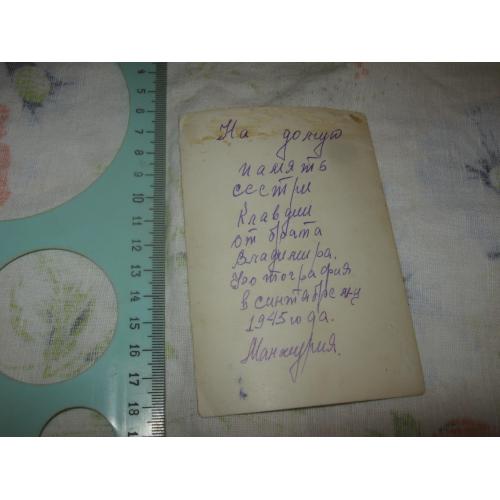 На долгую
память
сестри
Клавдии
от брата
Владимира.
Фотография
в синтябре мц
1945 года.
Манжурия.
4
5
6
7
8
9
10
11
12
13
14
15
16
17
18